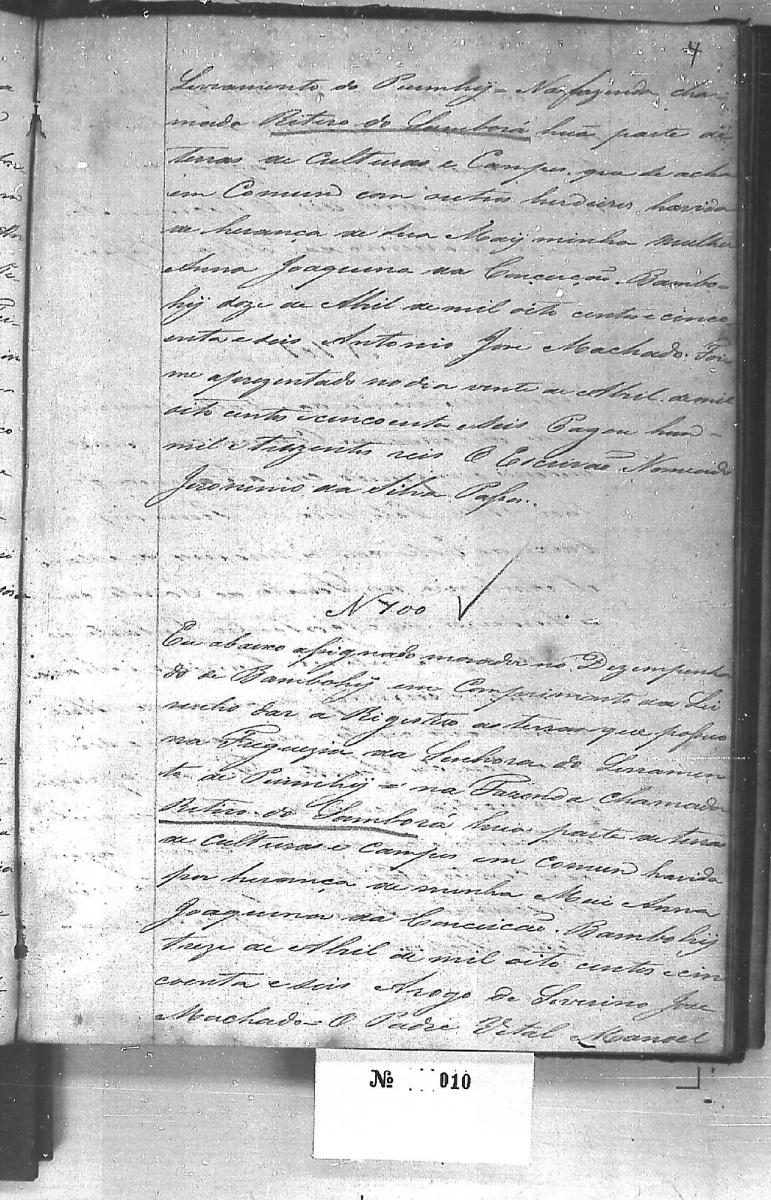 4
Livramento do Piumhÿ = Na fazenda cha-
mado Retiro do Samborá hũa parte de
terras de Culturas e Campos, que se acha
em Comum com outros herdeiros havida
de herança de sua Maÿ minha mulher
Anna Joaquina da Conceição. Bambo-
hÿ doze de Abril de mil oito centos e cinco
enta e seis Antonio Jose Machado. Foi
me aprezentado no dia vinte de Abril de mil
oito centos e cincoenta e seis Pagou hum
mil e trezentos reis O Escrivaõ Nomeado
Jeronimo da Silva
N 400
Eu abaixo assignado morador no Dezempenha
do de Bambohÿ em Comprimento da Lei
venho dar a Registro as terras que possuo
na Freguezia da Senhora do Livramen
to de Piumhÿ = na Fazenda chamada
Retiro do Samborá hua parte de terra
de culturas e campos em comum havida
por herança de minha Mai Anna
Joaquina da Conceicaõ. Bambohÿ
treze de Abril de mil oito centos e cin
coenta e seis Arogo de Severino Jose
Machado = O Padre Vital Manoel
Nº 010